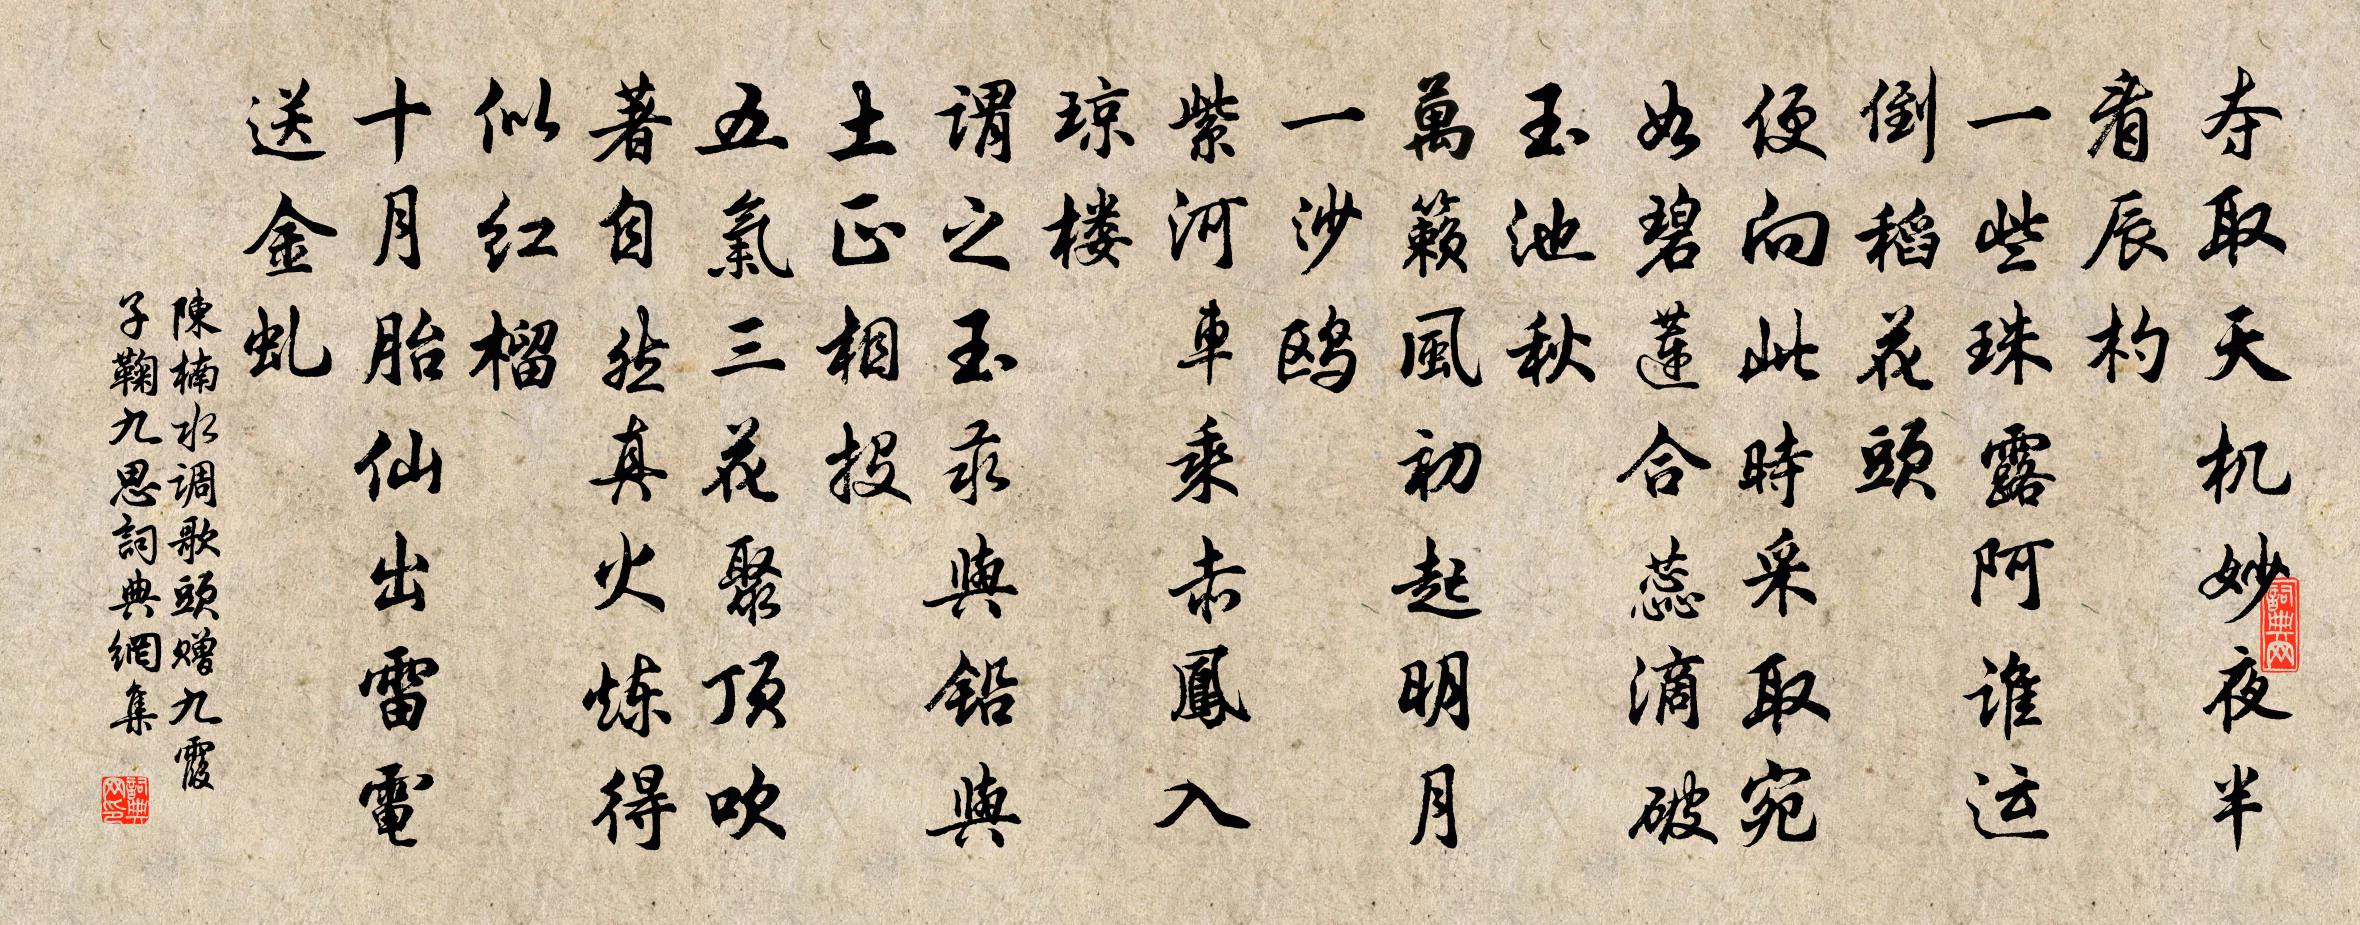 夺取天机妙夜半
看辰杓
一些珠露阿谁运
倒稻花頭
便向此時采取宛
如碧蓮合蕊滴破
玉池秋
萬籟風初起明月
一沙鸥
紫河車乘赤鳳入
琼楼
謂之玉汞與铅與
土正相投
五氣三花聚顶吹
著自然真火炼得
似红榴
十月胎仙出雷電
送金虬
陳楠水调歌頭赠九霞
子鞠九思詞典網集
詞典网
詞典网印